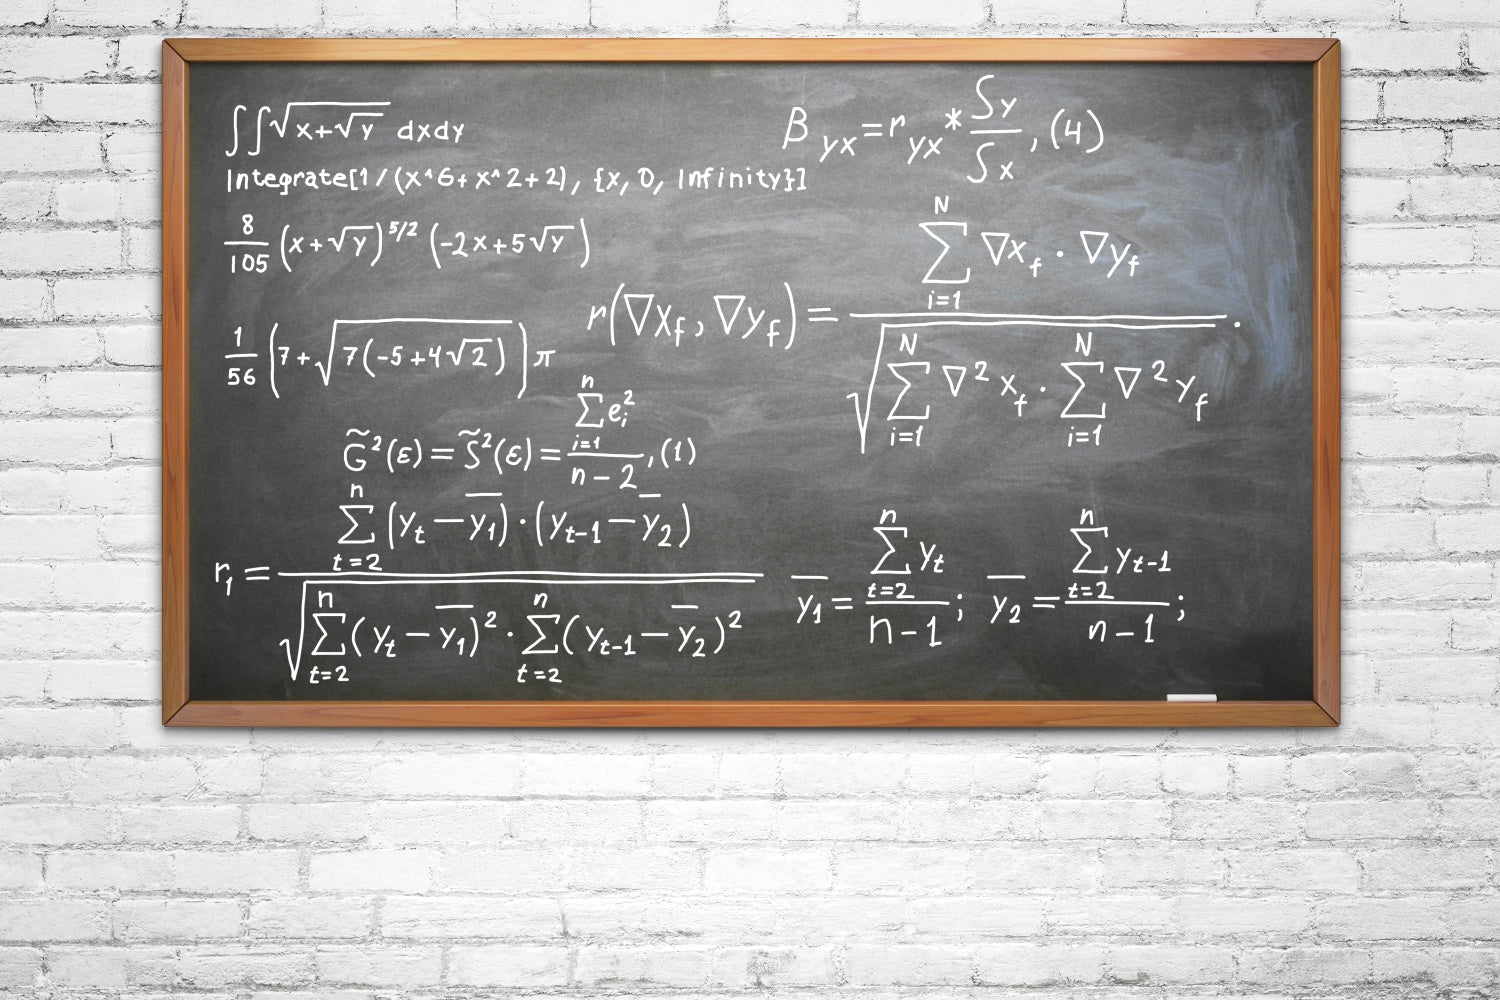 ∫∫√(x+√y) dxdy
Integrate[1/(x^6+x^2+2), {x, 0, Infinity}]
8/105 (x+√y)^5/2 (-2x+5√y)
1/56 (7+√(7(-5+4√2))) π
B_yx = r_yx * Sy/Sx , (4)
r(∇x_f , ∇y_f) = (∑_{i=1}^{N} ∇x_f · ∇y_f) / √(∑_{i=1}^{N} ∇² x_f · ∑_{i=1}^{N} ∇² y_f) .
G̃²(ε) = S̃²(ε) = (∑_{i=1}^{n} e_i²) / (n - 2) , (1)
r_1 = (∑_{t=2}^{n} (y_t − y̅_1) · (y_{t-1} − y̅_2)) / √(∑_{t=2}^{n} (y_t − y̅_1)² · ∑_{t=2}^{n} (y_{t-1} − y̅_2)²)
y̅_1 = (∑_{t=2}^{n} y_t) / (n - 1) ; y̅_2 = (∑_{t=2}^{n} y_{t-1}) / (n - 1) ;